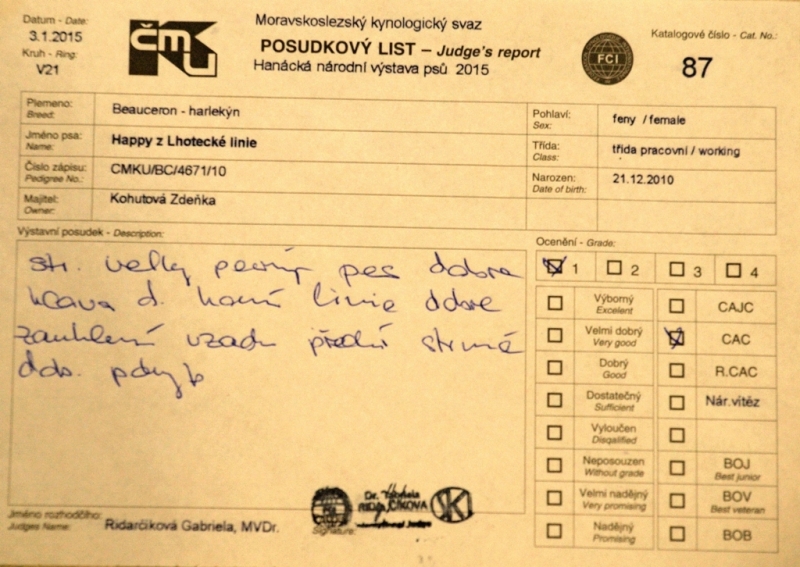 Datum - Date:
3.1.2015
Kruh - Ring:
V21
čmku
Moravskoslezský kynologický svaz
POSUDKOVÝ LIST – Judge's report
Hanácká národní výstava psů 2015
FCI
Katalogové číslo - Cat. No.:
87
Plemeno:
Breed:
Beauceron - harlekýn
Jméno psa:
Name:
Happy z Lhotecké linie
Číslo zápisu:
Pedigree No.:
CMKU/BC/4671/10
Majitel:
Owner:
Kohutová Zdeňka
Pohlaví:
Sex:
feny / female
Třída:
Class:
třída pracovní / working
Narozen:
Date of birth:
21.12.2010
Výstavní posudek - Description:
str. velký pevný pes dobra
hlava d. horní linie dobre
zauhlení vzadu přední strmé
dob. pohyb
Ocenění - Grade:
1 2 3 4
Výborný
Excelent
CAJC
Velmi dobrý
Very good
CAC
Dobrý
Good
R.CAC
Dostatečný
Sufficient
Nár.vítěz
Vyloučen
Disqalified
Neposouzen
Without grade
BOJ
Best junior
Velmi nadějný
Very promising
BOV
Best veteran
Nadějný
Promising
BOB
Jméno rozhodčího:
Judges Name:
Ridarčíková Gabriela, MVDr.
Signature:
Dr. Gabriela
RIDARČÍKOVÁ
International Judge